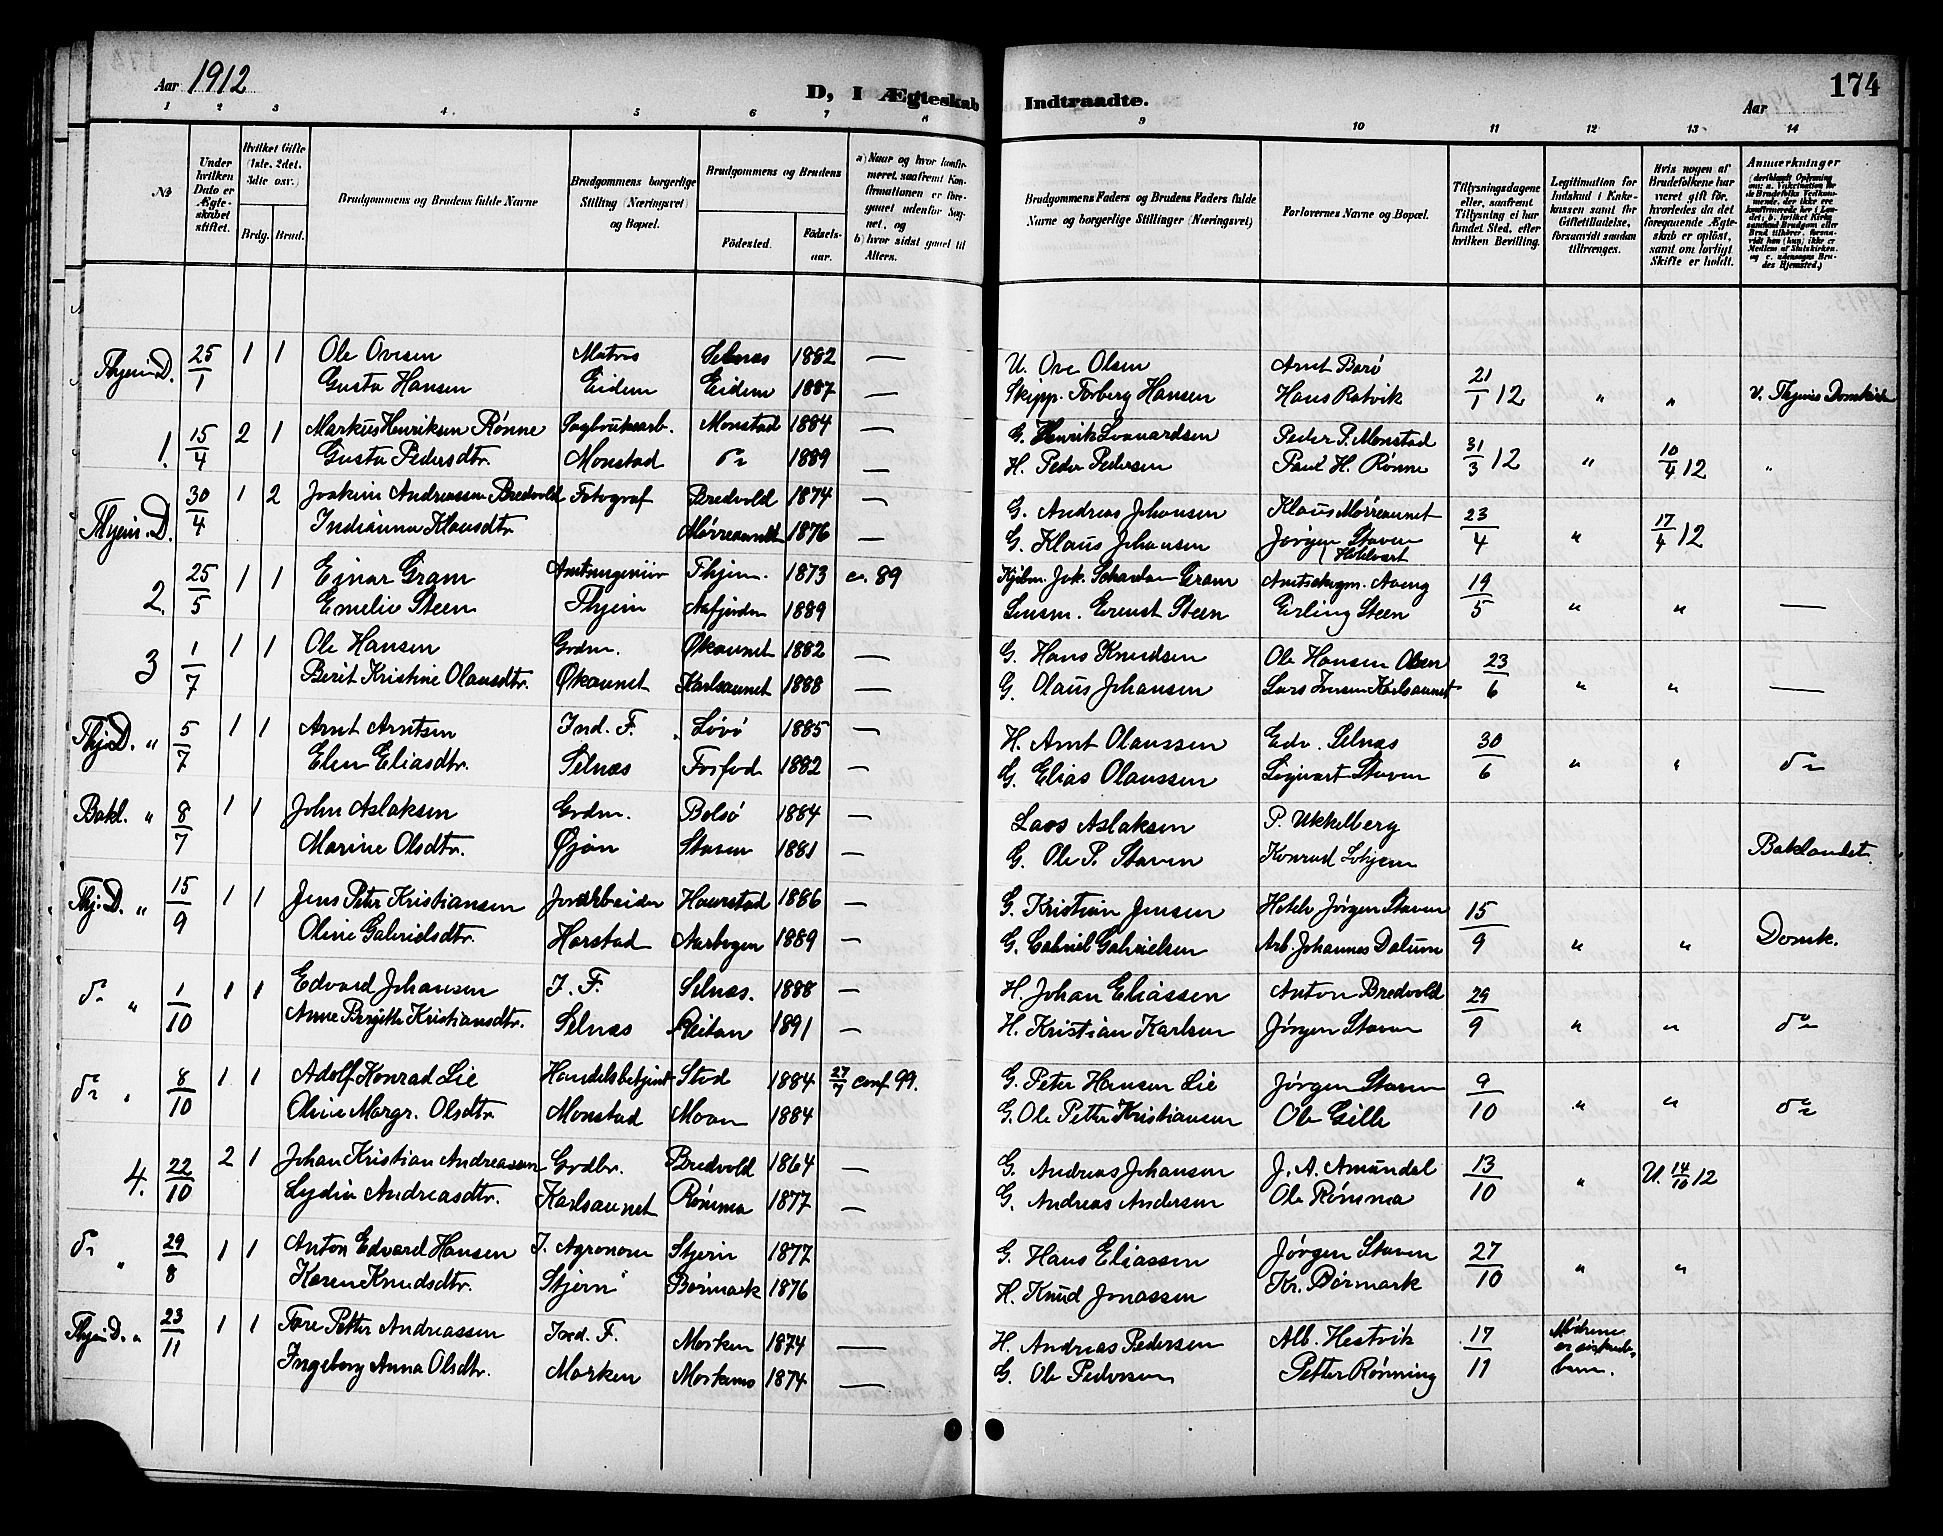 Aar 1912
D, I Ægteskab Indtraadte.
Aar
174
1 2 3 4 5 6 7 8 9 10 11 12 13 14
No
Under hvilken Dato er Ægteskabet stiftet.
Hvilket Gifte (1ste, 2det, 3die osv.)
Brdg. Brud.
Brudgommens og Brudens fulde Navne
Brudgommens borgerlige Stilling (Næringsvei) og Bopæl.
Brudgommens og Brudens
Fødested.
Fødselsaar.
a) Naar og hvor konfirmeret, saafremt Konfirmationen er foregaaet udenfor Sognet, og
b) hvor sidst gaaet til Alters.
Brudgommens Faders og Brudens Faders fulde Navne og borgerlige Stillinger (Næringsvei)
Forlovernes Navne og Bopæl.
Tillysningsdagene eller, saafremt Tillysning ei har fundet Sted, efter hvilken Bevilling.
Legitimation for Indskud i Enkekassen samt for Giftetilladelse, forsaavidt saadan tiltrænges.
Hvis nogen af Brudefolkene har været gift før, hvorledes da det foregaaende Ægteskab er opløst, samt om lovligt Skifte er holdt.
Anmærkninger
Thjem D. 25/1 1 1 Ole Ovesen Matros Selnæs 1882 — U. Ove Olsen Arnt Borø 21/1 12 " " V. Thjems Domkirke
Gusta Hansen Eidem Eidem 1887 — Skipp. Torberg Hansen Hans Ratvik
1. 15/4 2 1 Markus Henriksen Rønne Sagbruksarb. Monstad 1884 — G. Henrik Leonardsen Peder P. Monstad 31/3 12 " 10/4 12 "
Gusta Pedersdtr. Monstad do 1889 — H. Peder Pedersen Paul H. Rønne
Thjem. D. 30/4 1 2 Joakim Andreassen Bredvold Fotograf Bredvold 1874 — G. Andreas Johansen Klaus Mørreaunet 23/4 " 17/4 12
Indianna Klausdtr. Mørreaunet 1876 — G. Klaus Johansen Jørgen Staven Hotelvært
2. 25/5 1 1 Ejnar Gram Amtsingeniør Thjem. 1873 c. 89 Kjøbm. Joh. Gram Amtsskogm. Aveng 19/5 " " —
Emelie Steen Thjem Aafjorden 1889 Lensm. Ernst Steen Erling Steen
3 1/7 1 1 Ole Hansen Grdm. Økaunet 1882 — G. Hans Knudsen Ole Hansen Olsen 23/6 " " —
Berit Kristine Olausdtr. Økaunet Karlsaunet 1888 — G. Olaus Johansen Lars Jensen Karlsaunet
Thj. D. " 5/7 1 1 Arnt Arntsen Ind. F. Løvø 1885 — H. Arnt Olaussen Edv. Selnæs 30/6 " " do
Elen Eliasdtr. Selnæs Forfod 1882 — G. Elias Olaussen Sigvart Staven
Bakl. " 8/7 1 1 John Aslaksen Grdm. Bolsø 1884 — Laos Aslaksen P. Ukkelberg
Marine Olsdtr. Øjan Staven 1881 — G. Ole P. Staven Konrad Baklandet.
Thj. D. " 15/9 1 1 Jens Peter Kristiansen Jordarbeider Haarstad 1886 — G. Kristian Jensen Hotelv Jørgen Staven 15/9 " " Domk.
Oline Gabrielsdtr. Harstad Aarbogen 1889 — G. Gabriel Gabrielsen Arb. Johannes Dalum
do " 1/10 1 1 Edvard Johansen I. F. Selnæs. 1888 — H. Johan Eliassen Anton Bredvold 29/9 " " do
Anne Bergitte Kristiansdtr. Selnæs Reitan 1891 — H. Kristian Karlsen Jørgen Staven
do " 8/10 1 1 Adolf Konrad Lie Handelsbetjent Stod 1884 27/7 conf. 99. G. Peter Hansen Lie Jørgen Staven 9/10 " " do
Oline Margr. Olsdtr. Monstad Moan 1884 G. Ole Petter Kristiansen Ole Gille
4. 22/10 2 1 Johan Kristian Andreassen Grdbr. Bredvold 1864 — G. Andreas Johansen J. A. Amundal 13/10 " U. 14/10 12
Lydia Andreasdtr. Karlsaunet Rømma 1877 — G. Andreas Andersen Ole Rømma
do " 29/8 1 1 Anton Edvard Hansen I. Agronom Stjern 1877 G. Hans Eliassen Jørgen Staven 27/10 " "
Karen Knudsdtr. Stjern Børmark 1876 H. Knud Jonassen Kr. Børmark
Thjem D. " 23/11 1 1 Tore Petter Andreassen Ind. F. Morken 1874 — H. Andreas Pedersen Alb. Hestvik 17/11 Mødrene er søskendebørn.
Ingeborg Anna Olsdtr. Morken Morkemo 1874 — G. Ole Pedersen Petter Rønning